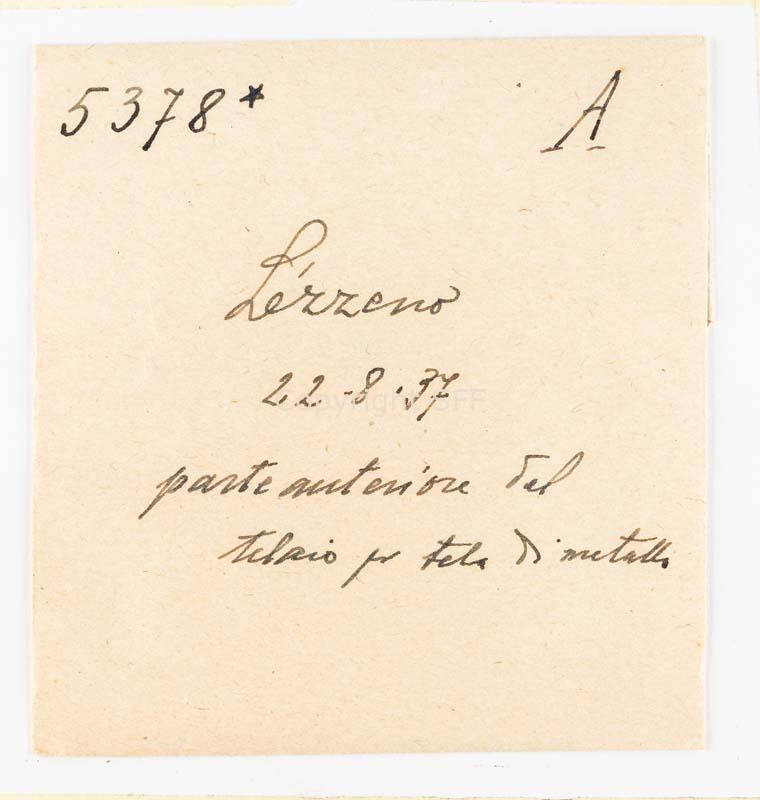 5378* A
Lézzeno
22-8.37
copyright SFF
parte anteriore del
telaio pr tela di metallo